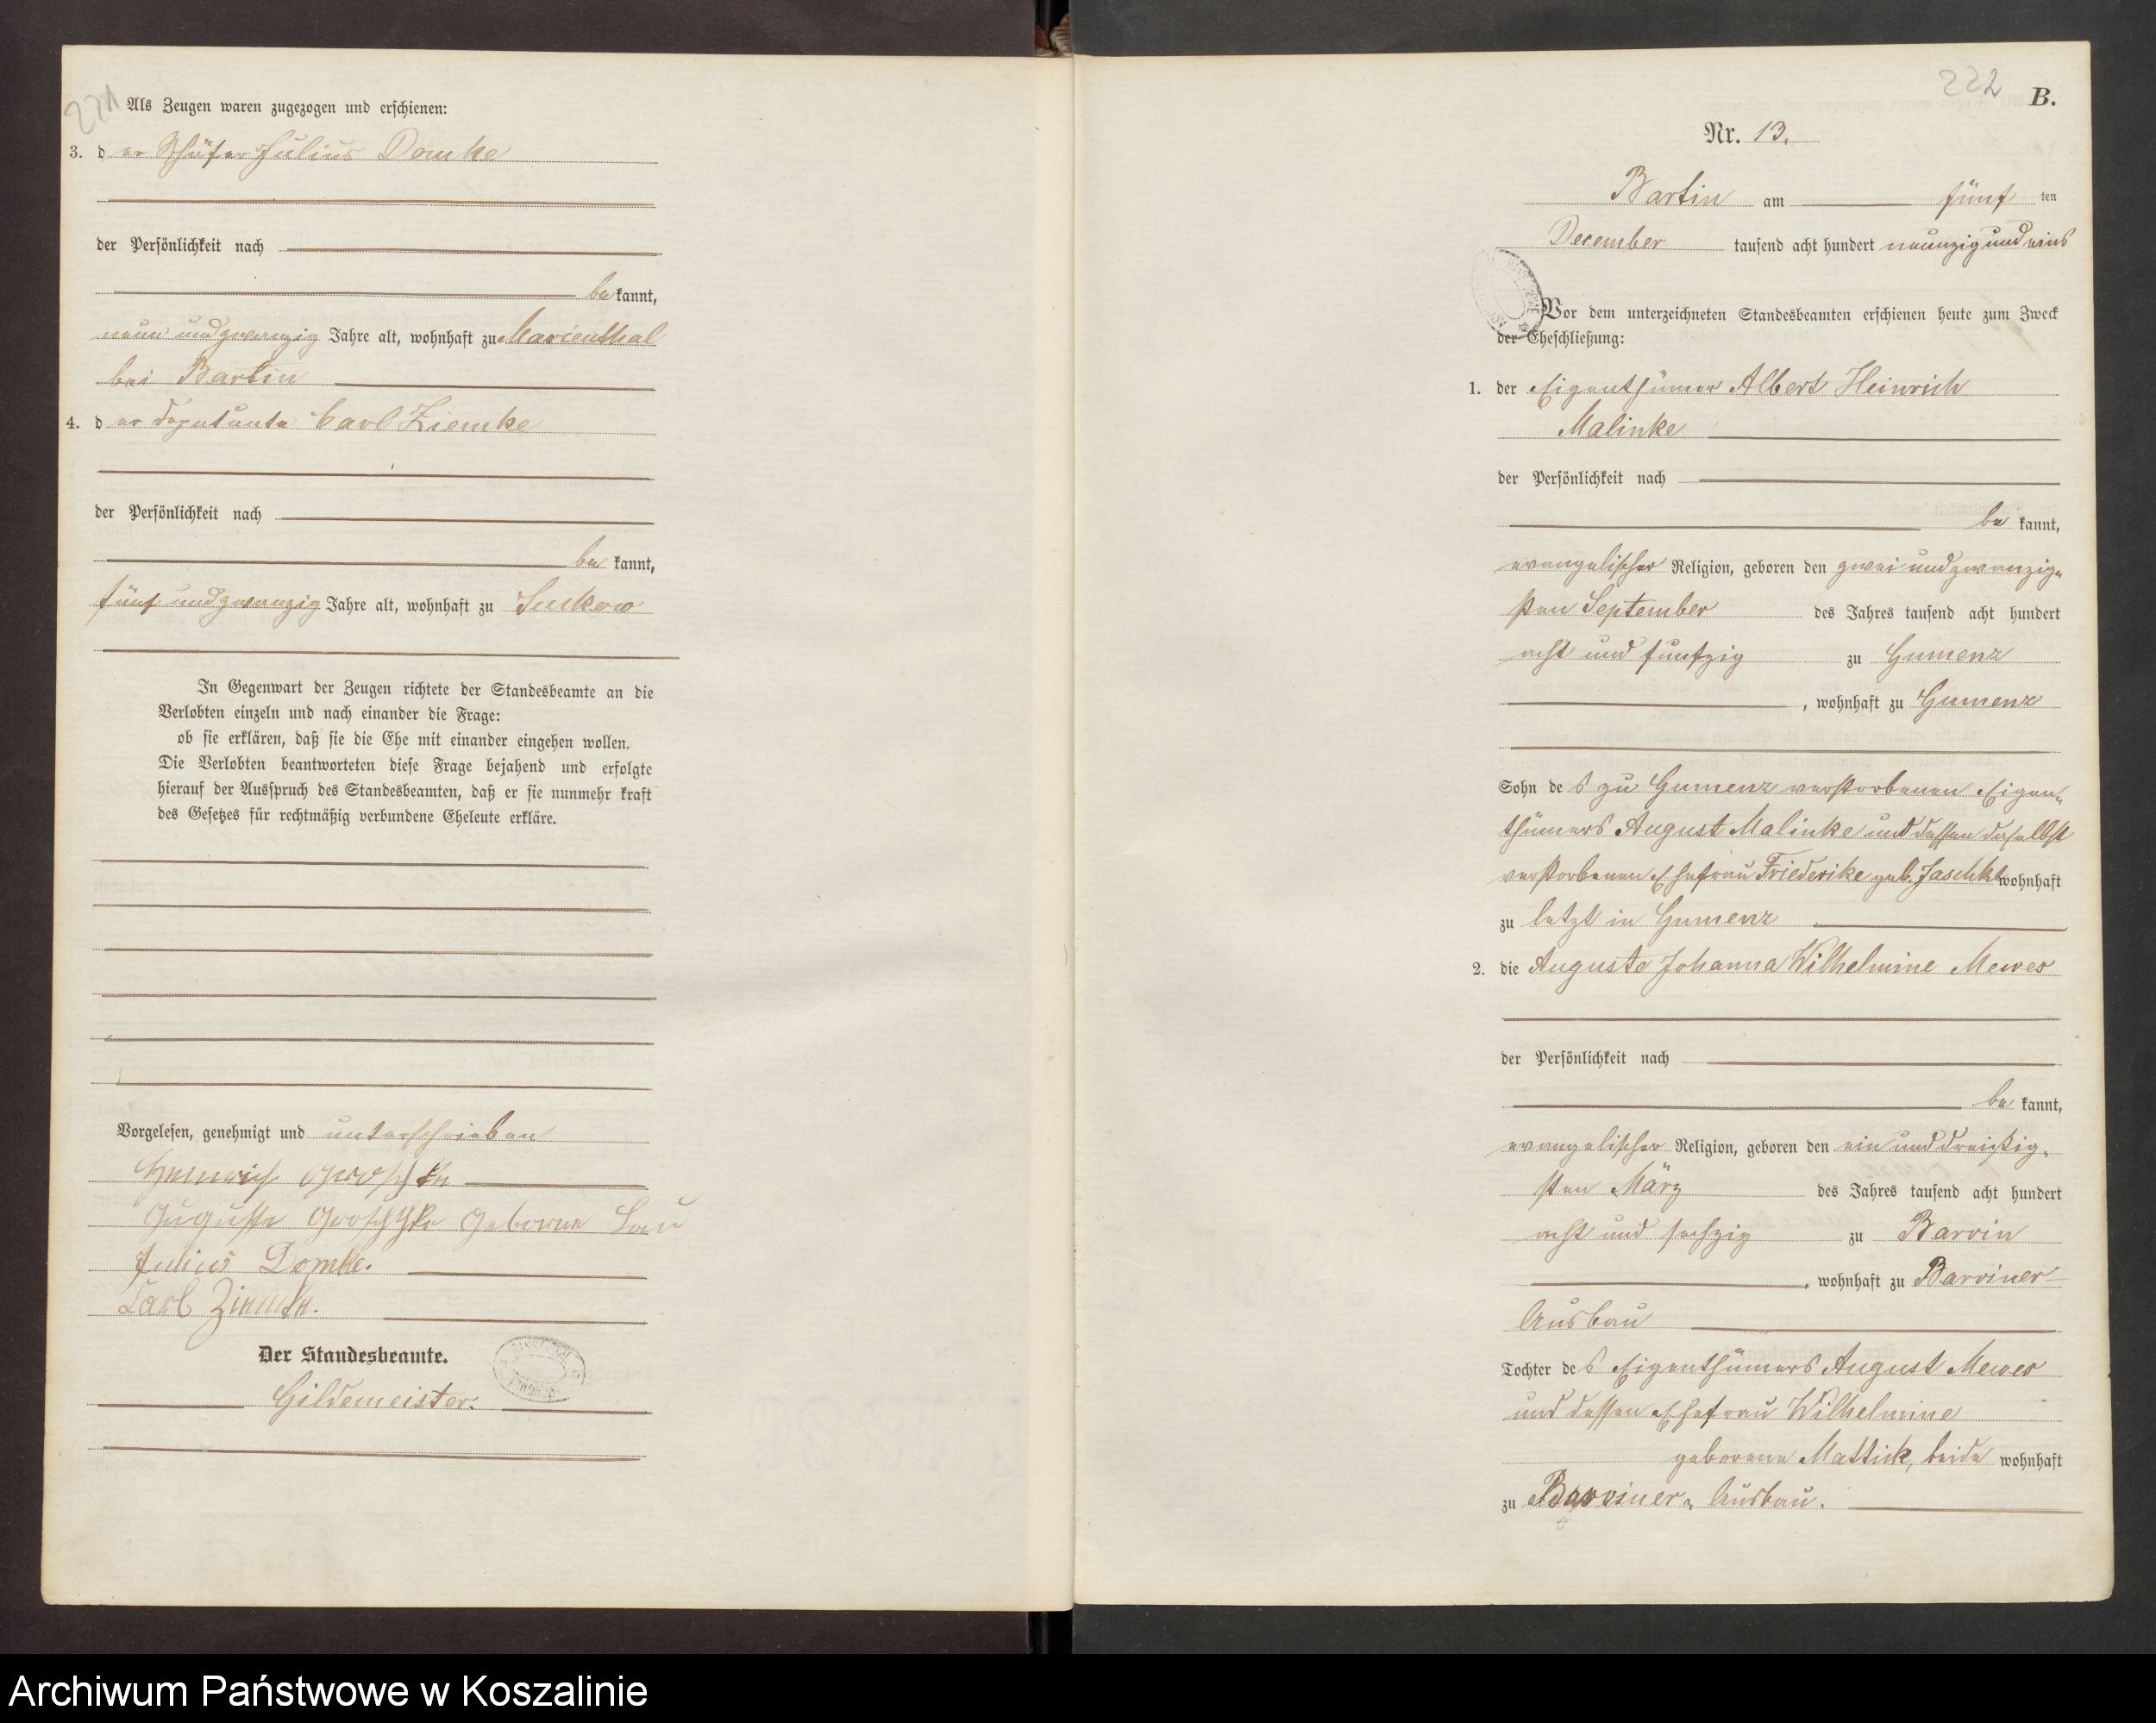 221
Als Zeugen waren zugezogen und erschienen:
3. der Schäfer Julius Domke
der Persönlichkeit nach
be kannt,
neun und zwanzig Jahre alt, wohnhaft zu Marienthal
bei Bartin
4. der Deputante Carl Ziemke
der Persönlichkeit nach
be kannt,
fünf und zwanzig Jahre alt, wohnhaft zu Suckow
In Gegenwart der Zeugen richtete der Standesbeamte an die
Verlobten einzeln und nach einander die Frage:
ob sie erklären, daß sie die Ehe mit einander eingehen wollen.
Die Verlobten beantworteten diese Frage bejahend und erfolgte
hierauf der Ausspruch des Standesbeamten, daß er sie nunmehr kraft
des Gesetzes für rechtmäßig verbundene Eheleute erkläre.
Vorgelesen, genehmigt und unterschrieben
Heinrich Groschke
Auguste Groschke Geborne Lau
Julius Domke.
Carl Ziemke.
Der Standesbeamte.
Gildemeister.
222
B.
Nr. 13.
Bartin am fünf ten
December tausend acht hundert neunzig und eins
Vor dem unterzeichneten Standesbeamten erschienen heute zum Zweck
der Eheschließung:
1. der Eigenthümer Albert Heinrich
Malinke
der Persönlichkeit nach
be kannt,
evangelischer Religion, geboren den zwei und zwanzig-
sten September des Jahres tausend acht hundert
acht und funfzig zu Gumenz
, wohnhaft zu Gumenz
Sohn des zu Gumenz verstorbenen Eigen-
thümers August Malinke und dessen daselbst
verstorbenen Ehefrau Friederike geb. Jaschke wohnhaft
zu letzt in Gumenz
2. die Auguste Johanna Wilhelmine Mewes
der Persönlichkeit nach
be kannt,
evangelischer Religion, geboren den ein und dreißig-
sten März des Jahres tausend acht hundert
acht und sechzig zu Barvin
, wohnhaft zu Barviner-
Ausbau
Tochter des Eigenthümers August Mewes
und dessen Ehefrau Wilhelmine
geborene Mattick, beide wohnhaft
zu Barviner- Ausbau.
Archiwum Państwowe w Koszalinie